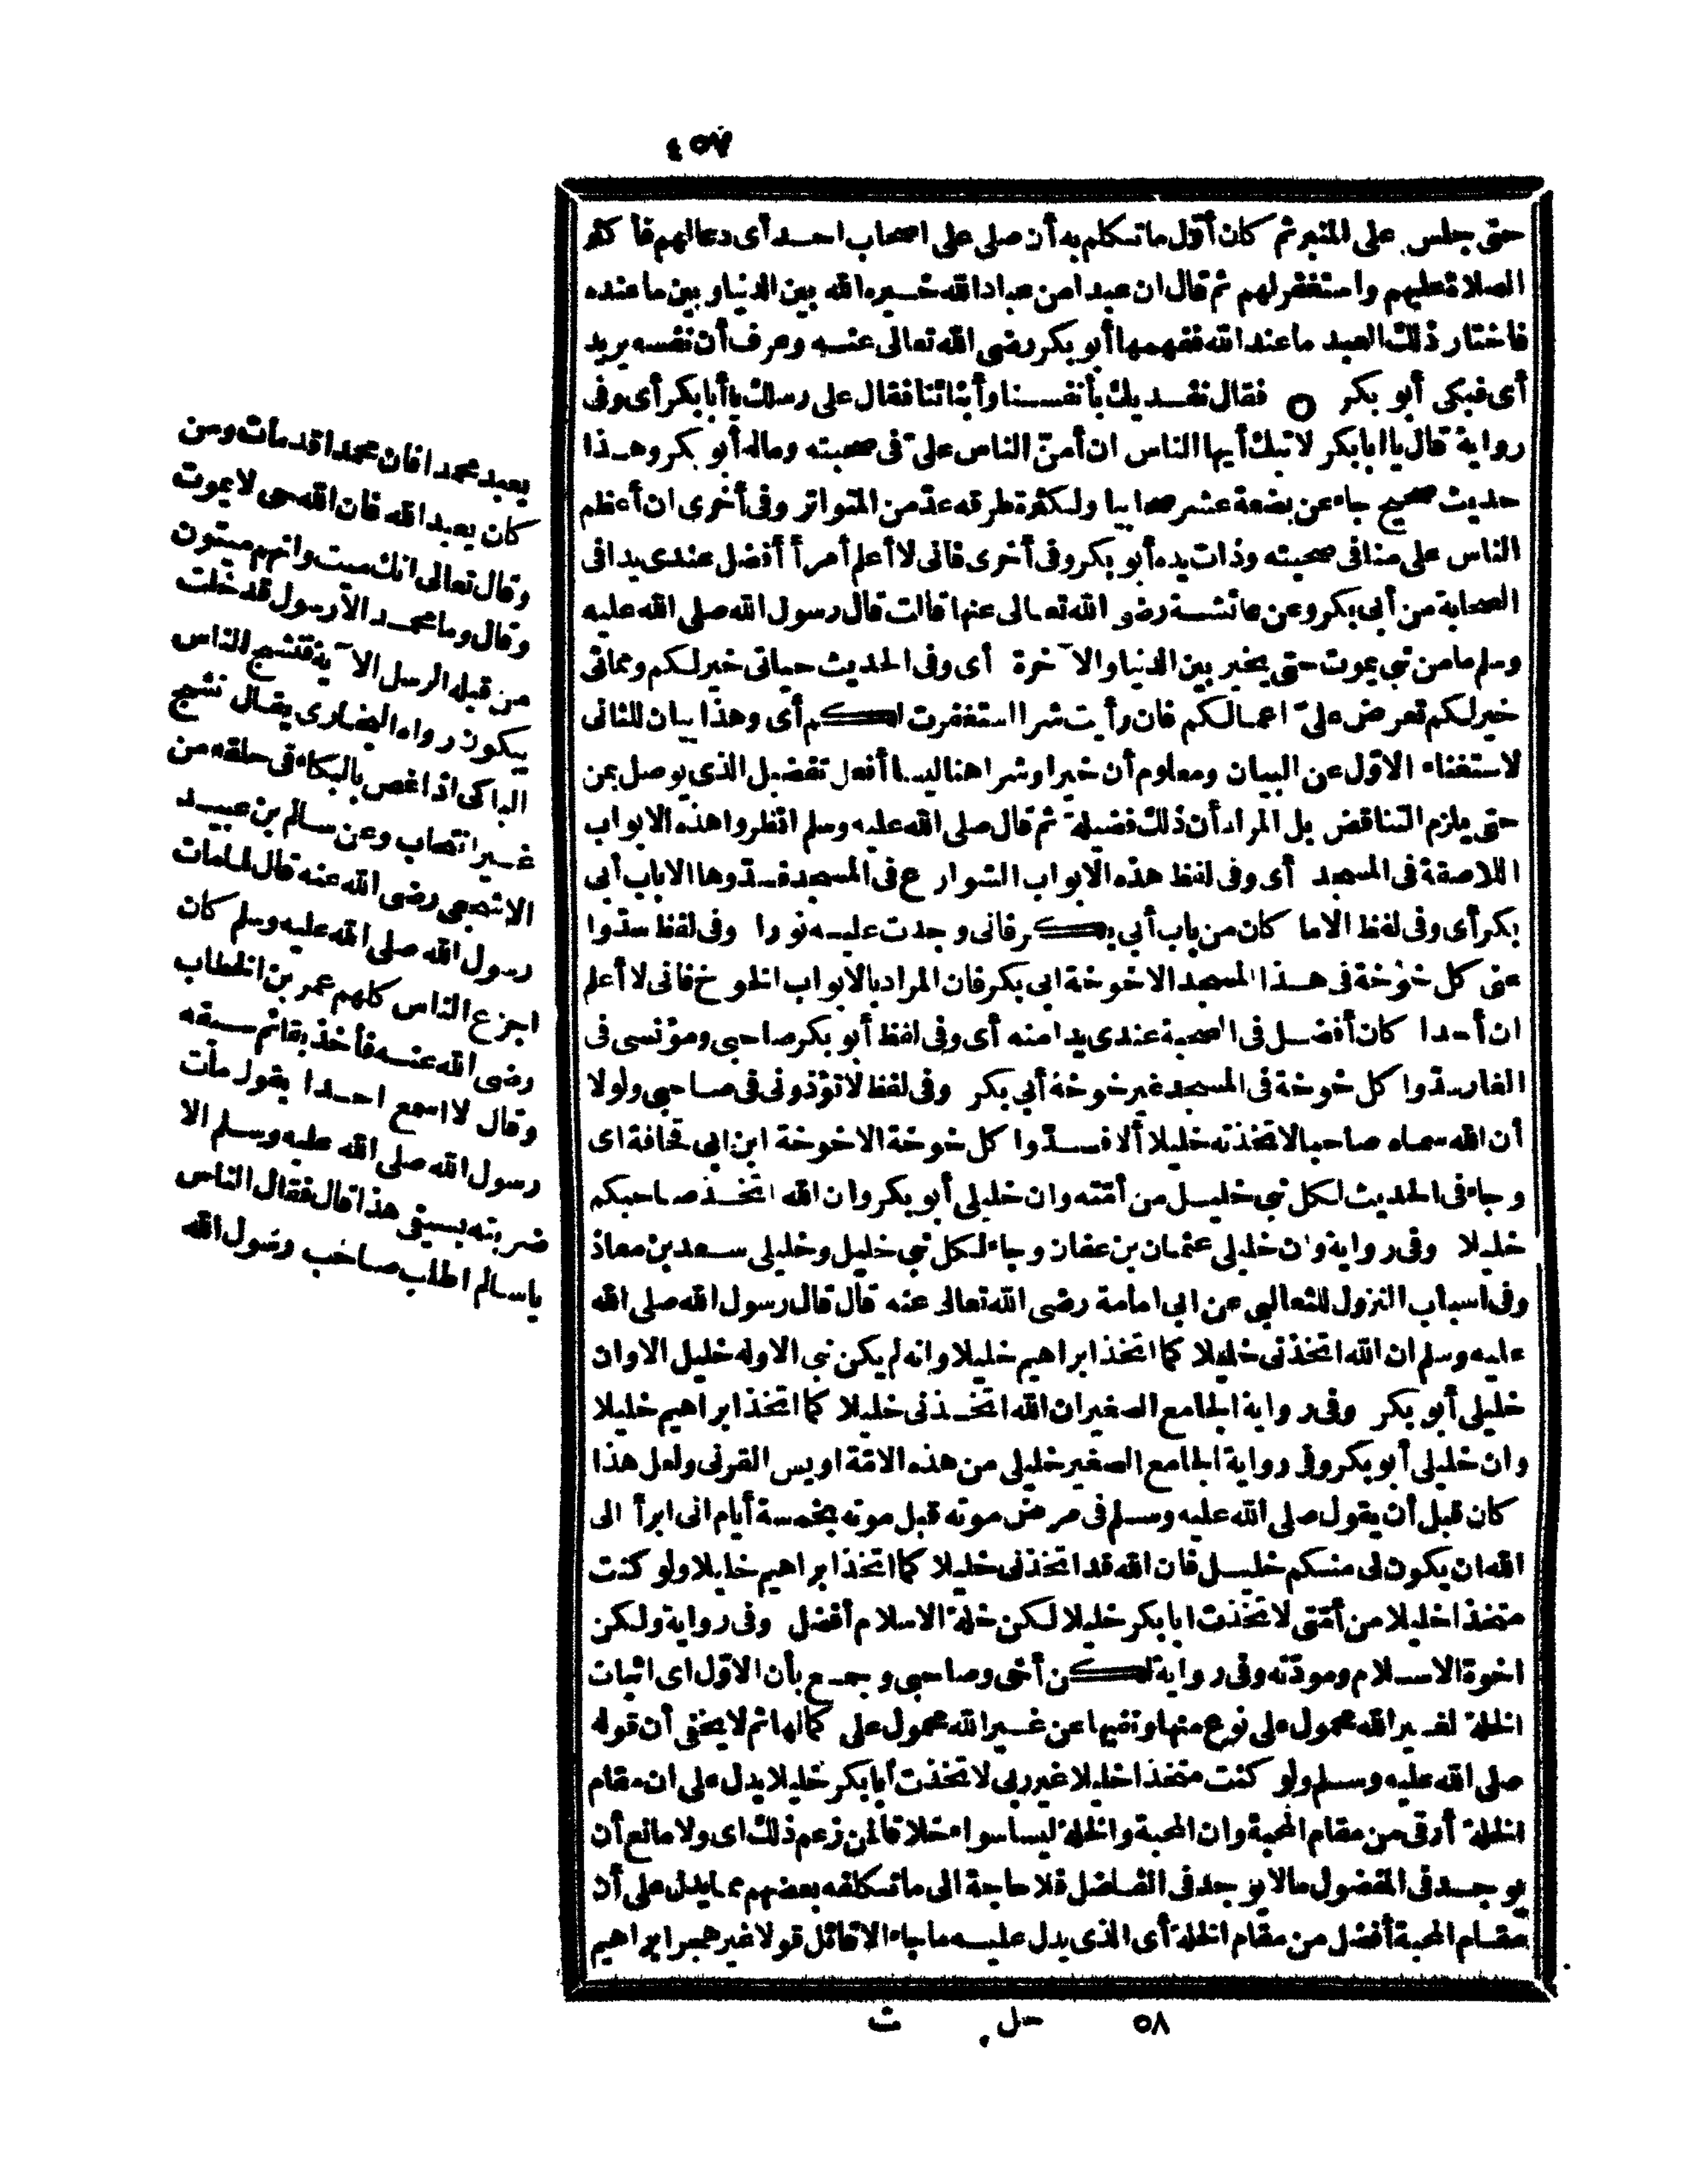 ٤٥٧
حتى جلس على المنبر ثم كان أول ما تكلم به أن صلى على اصحاب احد أى دعا لهم فأ كثر
الصلاة عليهم واستغفر لهم ثم قال ان عبدا من عباد الله خيره الله بين الدنيا و بين ما عنده
فاختار ذلك العبد ما عند الله ففهمها أبو بكر رضى الله تعالى عنه وعرف أن نفسه يريد
أى فبكى أبو بكر فقال نفديك بأنفسنا وأبنائنا فقال على رسلك يا أبا بكر أى وفى
رواية قال يا ابا بكر لا تبك أيها الناس ان أمن الناس علىّ فى صحبته وماله أبو بكر وهذا
حديث صحيح جاء عن بضعة عشر صحابيا ولكثرة طرقه عد من المتواتر وفى أخرى ان أعظم
الناس على منا فى صحبته وذات يده أبو بكر وفى أخرى فانى لا أعلم أمرأ أفضل عندى يدا فى
الصحابة من أبى بكر وعن عائشة رضى الله تعالى عنها قالت قال رسول الله صلى الله عليه
وسلم ما من نبى يموت حتى يخير بين الدنيا والآخرة أى وفى الحديث حياتى خير لكم ومماتى
خير لكم تعرض علىّ اعمالكم فان رأيت شرا استغفرت لكم أى وهذا بيان للثانى
لاستغناء الاوّل عن البيان ومعلوم أن خيرا وشرا هنا ليسا أفعل تفضيل الذى يوصل بمن
حتى يلزم التناقض بل المراد أن ذلك فضيلة ثم قال صلى الله عليه وسلم انظروا هذه الابواب
اللاصقة فى المسجد أى وفى لفظ هذه الابواب الشوارع فى المسجد فسدّوها الاباب أبى
بكر أى وفى لفظ الاما كان من باب أبى بكر فانى وجدت عليه نورا وفى لفظ سدّوا
عنى كل خوخة فى هذا المسجد الاخوخة ابى بكر فان المراد بالابواب الخوخ فانى لا أعلم
ان أحدا كان أفضل فى الصحبة عندى يدا منه أى وفى لفظ أبو بكر صاحبى ومؤنسى فى
الغار سدّوا كل خوخة فى المسجد غير خوخة أبى بكر وفى لفظ لا تؤذونى فى صاحبى ولولا
أن الله سماه صاحبا لاتخذته خليلا ألا فسدّوا كل خوخة الاخوخة ابن ابى قحافة اى
وجاء فى الحديث لكل نبى خليل من أمّته وان خليلى أبو بكر وان الله اتخذ صاحبكم
خليلا وفى رواية وان خليلى عثمان بن عفان وجاء لكل نبى خليل وخليلى سعد بن معاذ
وفى اسباب النزول للثعالبى عن ابى امامة رضى الله تعالى عنه قال قال رسول الله صلى الله
عليه وسلم ان الله اتخذنى خليلا كما اتخذ ابراهيم خليلا وانه لم يكن نبى الاوله خليل الاوان
خليلى أبو بكر وفى رواية الجامع الصغير ان الله اتخذنى خليلا كما اتخذ ابراهيم خليلا
وان خليلى أبو بكر وفى رواية الجامع الصغير خليلى من هذه الامّة اويس القرنى ولعل هذا
كان قبل أن يقول صلى الله عليه وسلم فى مرض موته قبل موته بخمسة أيام انى ابرأ الى
الله ان يكون لى منكم خليل فان الله قد اتخذنى خليلا كما اتخذ ابراهيم خليلا ولو كنت
متخذا خليلا من أمّتى لاتخذت ابا بكر خليلا لكن خلة الاسلام أفضل وفى رواية ولكن
اخوة الاسلام ومودّته وفى رواية لكن أخى وصاحبى وجمع بأن الاوّل اى اثبات
الخلة لغير الله محمول على نوع منها ونفيها عن غير الله محمول على كمالها ثم لا يخفى أن قوله
صلى الله عليه وسلم ولو كنت متخذا خليلا غير ربى لاتخذت أبا بكر خليلا يدل على ان مقام
الخلة أرقى من مقام المحبة وان المحبة والخلة ليسا سواء خلافا لمن زعم ذلك اى ولا مانع أن
يوجد فى المفضول ما لا يوجد فى الفاضل فلا حاجة الى ما تكلفه بعضهم مما يدل على أن
مقام المحبة أفضل من مقام الخلة أى الذى يدل عليه ما جاء الا قائل قولا غير هجر ابراهيم
٥٨ حل ث
يعبد محمدا فان محمدا قد مات ومن
كان يعبد الله فان الله حى لا يموت
وقال تعالى انك ميت وانهم ميتون
وقال وما محمد الا رسول قد خلت
من قبله الرسل الآية فنشج الناس
يبكون رواه البخارى يقال نشج
الباكى اذا غص بالبكاء فى حلقه من
غير انتحاب وعن سالم بن عبيد
الاشجعى رضى الله عنه قال لما مات
رسول الله صلى الله عليه وسلم كان
اجزع الناس كلهم عمر بن الخطاب
رضى الله عنه فأخذ بقائم سيفه
وقال لا اسمع احدا يقول مات
رسول الله صلى الله عليه وسلم الا
ضربته بسيفى هذا قال فقال الناس
يا سالم اطلب صاحب رسول الله